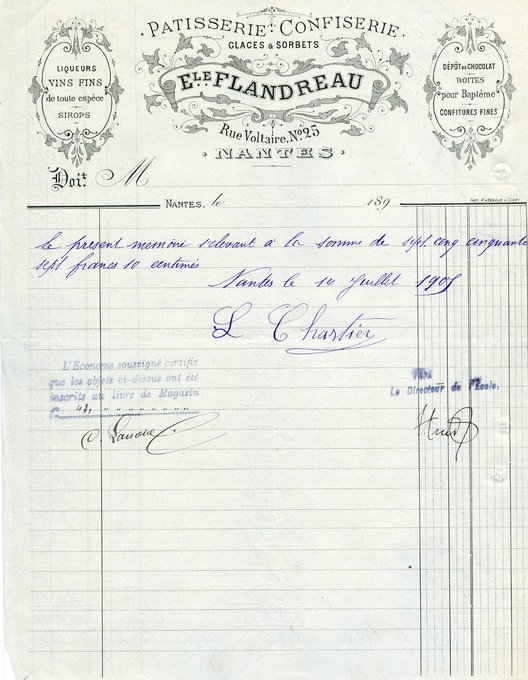 PATISSERIE · CONFISERIE
GLACES & SORBETS
ELE FLANDREAU
Rue Voltaire, No. 25
NANTES
LIQUEURS
VINS FINS
de toute espèce
SIROPS
DÉPÔT DE CHOCOLAT
BOITES
pour Baptême
CONFITURES FINES
Doit M
NANTES, le 189
le présent mémoire s'élevant à la somme de sept cinq cinquante
sept francs 10 centimes
Nantes le 1er Juillet 1905
L Chartier
L'Econome soussigné certifie
que les objets ci-dessus ont été
inscrits au livre de Magasin
Vu
Le Directeur de l'Ecole,